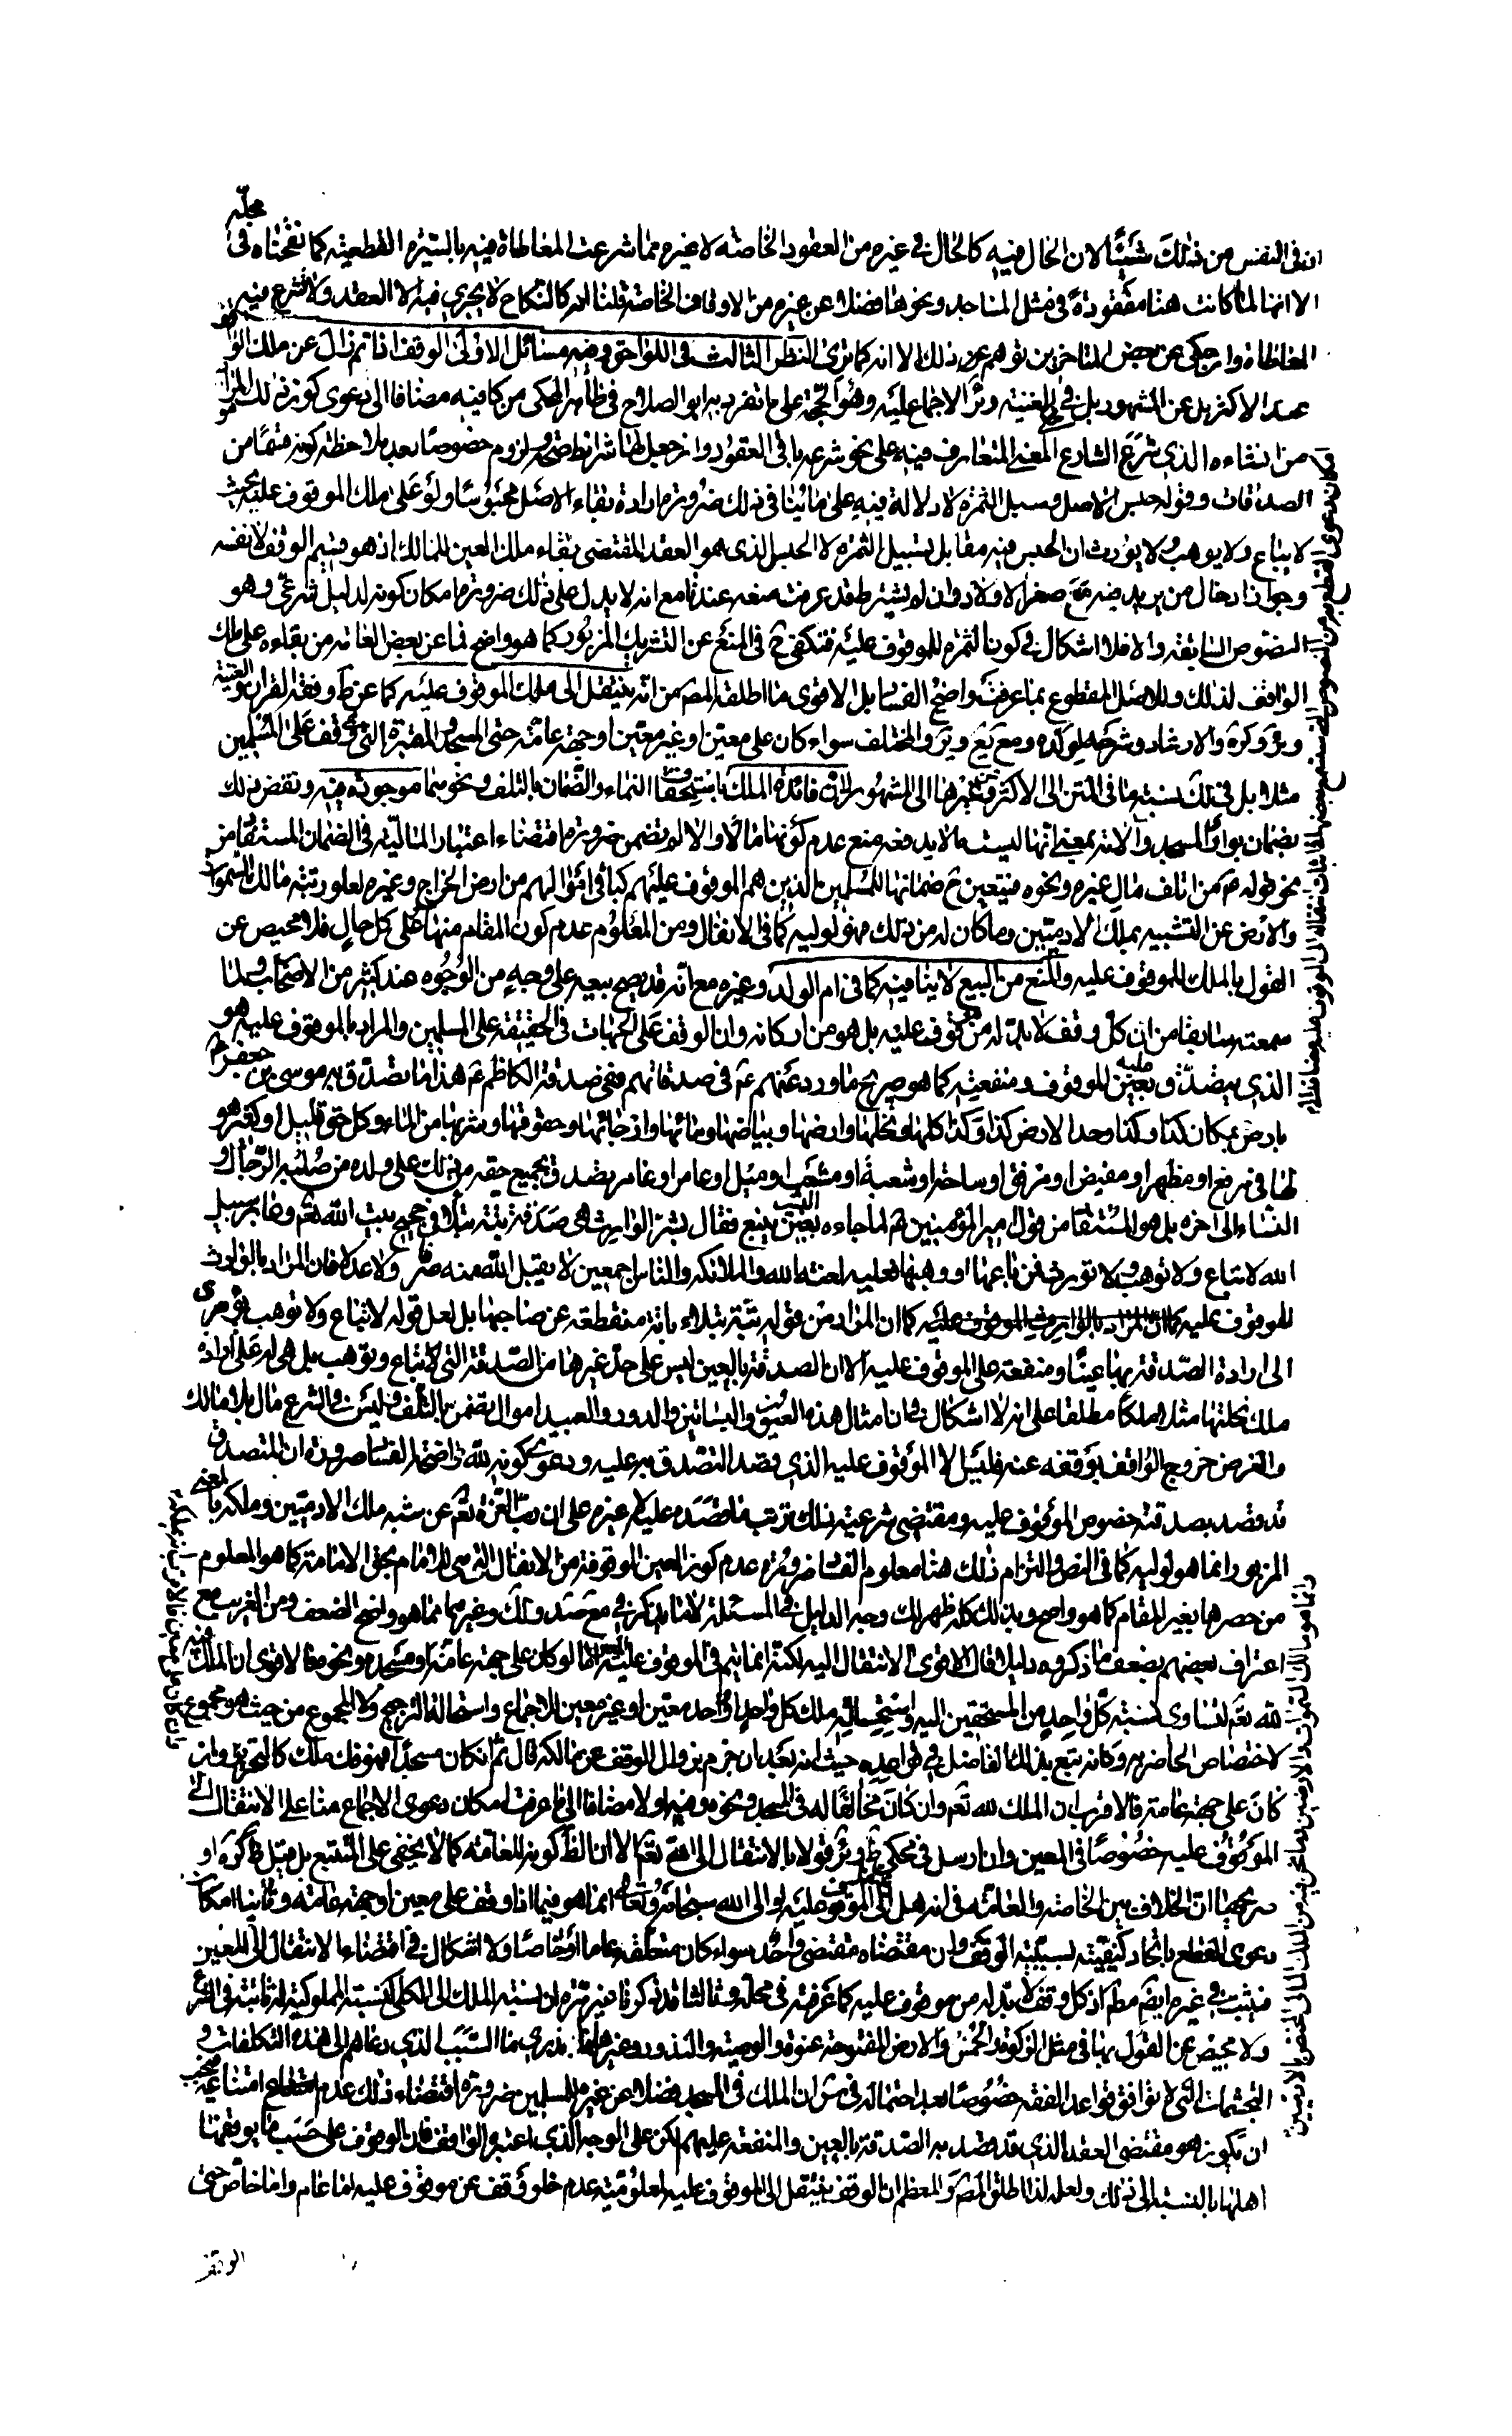 ان في النفس من ذلك شيئا لان الحال فيه كالحال في غيره من العقود الخاصة لا غيره مما شرعت المعاطاة فيه بالسيرة القطعية كما نقحناه في
محله
الا انها لما كانت هنا مفقودة في مثل المساجد ونحوها فضلا عن غيره من الاوقاف الخاصة قلنا انه كالنكاح لا يجري فيه الا العقد ولا تشرع فيه
المعاطاة وان حكى عن بعض المتاخرين توهم عن ذلك الا انه كما ترى النظر الثالث في اللواحق وفيه مسائل الاولى الوقف اذا تم زال عن ملك الواقف
عند الاكثر بل عن المشهور بل في الغنية وئر الاجماع عليه وهو الحجة على ما تفرد به ابو الصلاح في ظاهر المحكى من كافيه مضافا الى دعوى كون ذلك المراد
من انشاءه الذي شرع الشارع المعنى المتعارف فيه على نحو شرعه باقي العقود وان جعل لها شرائط صحة ولزوم خصوصا بعد ملاحظة كونه قسما من
الصدقات وقوله حبس الاصل وسبل الثمرة لا دلالة فيه على ما ينافي ذلك ضرورة ارادة بقاء الاصل محبوسا ولو على ملك الموقوف عليه بحيث
لا يباع ولا يوهب ولا يورث ان الحبس فيه مقابل لتسبيل الثمرة لا الحبس الذي هو العقد المقتضي بقاء ملك العين للمالك اذ هو قسيم الوقف لا نفسه
وجواز ادخال من يريد فيه مع صغر الاولاد وان لم يشترط قد عرفت منعه عندنا مع انه لا يدل على ذلك ضرورة امكان كونه لدليل شرعي وهو
النصوص السابقة والا فلا اشكال في كون الثمرة للموقوف عليه فتكفي ح في المنع عن التشريك المزبور كما هو واضح فما عن بعض العامة من بقاءه على ملك
الواقف لذلك وللاصل المقطوع بما عرفت واضح الفساد بل الاقوى ما اطلقه المصـ من انه ينتقل الى ملك الموقوف عليه كما عن ط وفقه القران والغنية
وئر وكره والارشاد وشرحه لولده ومع يع وير والمختلف سواء كان على معين او غير معين او جهة عامة حتى المسجد والمقبرة التي هي وقف على المسلمين
مثلا بل في لك نسبة ما في المتن الى الاكثر وغيرها الى المشهور لان فائدة الملك باستحقاق النماء والضمان بالتلف ونحوهما موجودة فيه ونقض ذلك
بضمان بواري المسجد والاته بمعنى انها ليست ما لا يدفعه منع عدم كونها مالا والا لم تضمن ضرورة اقتضاء اعتبار المالية في الضمان المستفاد من
نحو قوله ع من اتلف مال غيره ونحوه فيتعين ح ضمانها للمسلمين الذين هم الموقوف عليهم كباقي اموالهم من ارض الخراج وغيره لعلو رتبة مالك السموات
والارض عن التشبيه بملك الادميين وما كان له من ذلك فهو لوليه كما في الانفال ومن المعلوم عدم كون المقام منها على كل حال فلا محيص عن
القول بالملك للموقوف عليه والمنع من البيع لا ينافيه كما في ام الولد وغيره مع انه قد يصح بيعه على وجه من الوجوه عند كثير من الاصحاب ولما
سمعته سابقا من ان كل وقف لا بد له من موقوف عليه بل هو من اركانه وان الوقف على الجهات في الحقيقة على المسلمين والمراد بالموقوف عليه هو
الذي يتصدق عليه بعين الموقوف ومنفعته كما هو صريح ما ورد عنهم ع في صدقاتهم ففي صدقة الكاظم ع هذا ما تصدق به موسى بن جعفر ع
بارض بمكان كذا وكذا وحد الارض كذا وكذا كلها ونخلها وارضها وبياضها ومائها وارجائها وحقوقها وشربها من الماء وكل حق قليل او كثير هو
لها في مرفع او مظهر او مغيض او مرفق او ساحة او شعبة او مشعب او مسيل او عامر او غامر تصدق بجميع حقه من ذلك على ولده من صلبه الرجال و
النساء الى اخره بل هو المستفاد من قول امير المؤمنين ع لما جاءه البشير بعين ينبع فقال بشر الوارث هي صدقة بتة بتلا في حجيج بيت الله تعـ وعابر سبيل
الله لا تباع ولا توهب ولا تورث فمن باعها او وهبها فعليه لعنة الله والملائكة والناس اجمعين لا يقبل الله منه صرفا ولا عدلا فان المراد بالوارث
للموقوف عليه كما ان المراد من قوله بتة بتلاء بانة منقطعة عن صاحبها بل لعل قوله لا تباع ولا توهب يومئ
الى ارادة الصدقة بها عينا ومنفعة على الموقوف عليه الا ان الصدقة بالعين ليس على حد غيرها من الصدقة التي تباع وتوهب بل هي له على ارادة
ملك نحلتها مثلا ملكا مطلقا على انه لا اشكال في ان امثال هذه العيون والبساتين والدور والعبيد اموال يضمن بالتلف وليس في الشرع مال بلا مالك
والفرض خروج الواقف بوقفه عنه فليس الا الموقوف عليه الذي قصد التصدق به عليه ودعوى كونه لله تع واضحة الفساد ضرورة ان المتصدق
قد قصد بصدقته خصوص الموقوف عليه ومقتضى شرعية ذلك ترتب ما قصده عليه لا غيره على ان رب العزة تعـ عن شبه ملك الادميين وملكه بالمعنى
المزبور انما هو لوليه كما في النص والتزام ذلك هنا معلوم الفساد ضرورة عدم كون العين الموقوفة من الانفال التي هي للامام بحق الامامة كما هو المعلوم
من حصرها بغير المقام كما هو واضح وبذلك كله ظهر لك وجه الدليل في المسئلة لا ما يذكر في مع صد ولك وغيرهما مما هو واضح الضعف ومن الغريب مع
اعتراف بعضهم بضعف ما ذكروه دليلا قال الاقوى الانتقال اليه لكنه انما يتم في الموقوف عليه المعين اما لو كان على جهة عامة او مسجد ونحوه فالاقوى ان الملك فيه
لله تعـ لتساوى نسبة كل واحد من المستحقين اليه واستحالة ملك كل واحد او واحد معين او غير معين للاجماع واستحالة الترجيح ولا المجموع من حيث هو مجموع
لاختصاص الحاضر به وكانه تبع بذلك الفاضل في قواعده حيث انه بعد ان جزم بزوال الوقف عن مالكه قال ثم ان كان مسجدا فهو فك ملك كالتحرير وان
كان على جهة عامة فالاقرب ان الملك لله تعـ وان كان مخالفا له في المسجد ونحوه وفيه اولا مضافا الى ما عرفت امكان دعوى الاجماع منا على الانتقال الى
الموقوف عليه خصوصا في المعين وان ارسل في محكى ط وئر قولا بالانتقال الى الله تعـ الا ان الظ كونه للعامة كما لا يخفى على المتتبع بل قيل ظ كره او
صريحها ان الخلاف بين الخاصة والعامة في انه هل الى الموقوف عليه او الى الله سبحانه وتعالى انما هو فيما اذا وقف على معين او جهة عامة وثانيا امكان
دعوى القطع باتحاد كيفيته لسببية الوقف وان مقتضاه مقتضى واحد سواء كان متعلقه عاما او خاصا ولا اشكال في اقتضاءه الانتقال الى المعين
فيثبت في غيره ايضـ مط اذ كل وقف لا بد له من موقوف عليه كما عرفته في محله وثالثا قد ذكرنا غير مرة ان نسبة الملك الى الكلى كنسبة المملوكية له ثابتة في الشرع
ولا محيص عن القول بها في مثل الزكوة والخمس والارض المفتوحة عنوة والوصية والنذور وغيرها فما ندري ما السبب الذي دعاهم الى هذه التكلفات و
التجشمات التي لا توافق قواعد الفقه خصوصا بعد احتماله في مثن ان الملك في المسجد فضلا عن غيره للمسلمين ضرورة اقتضاء ذلك عدم امتناعه فيجب
ان يكون هو مقتضى العقد الذي قد قصد به الصدقة بالعين والمنفعة عليهم لكن على الوجه الذي اعتبره الواقف فان الوقوف على حسب ما يوقفها
اهلها بالنسبة الى ذلك ولعله لذا اطلق المصـ والمعظم ان الوقف ينتقل الى الموقوف عليه لمعلومية عدم خلو وقف عن موقوف عليه اما عام واما خاص حتى
الوقف